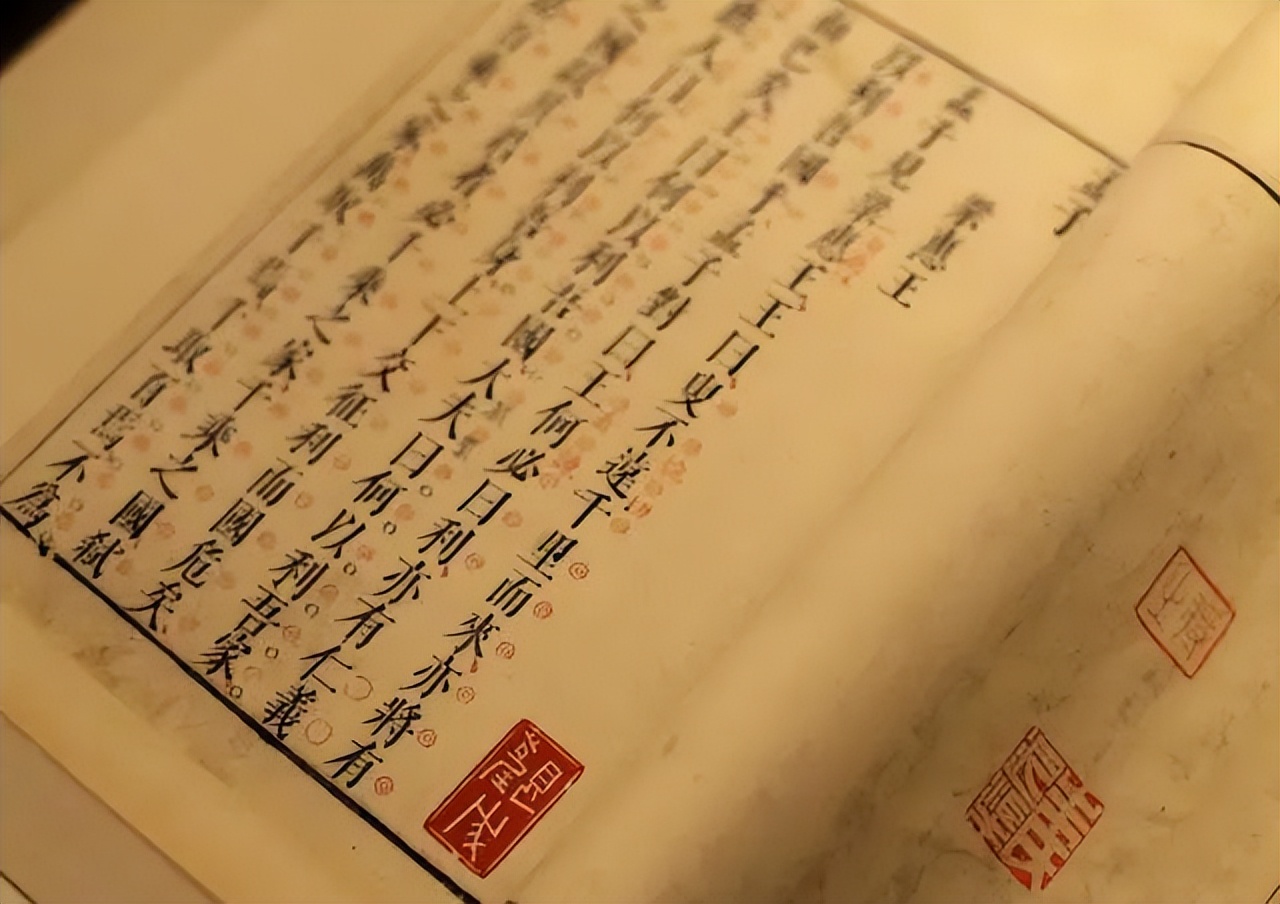 孟子
梁惠王
孟子見梁惠王王曰叟不遠千里而來亦將有
以利吾國乎孟子對曰王何必曰利亦有仁義
而已矣王曰何以利吾國大夫曰何以利吾家
庶人曰何以利吾身上下交征利而國危矣
之國弒其君者必千乘之家千乘之國弒
百乘之家萬取千焉千取百焉不為